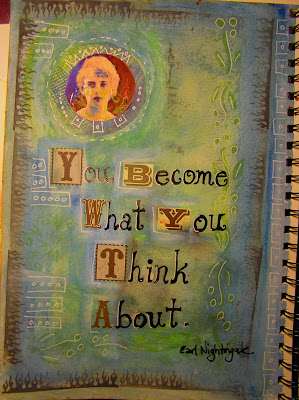 You Become
What You
Think
About.
Earl Nightingale